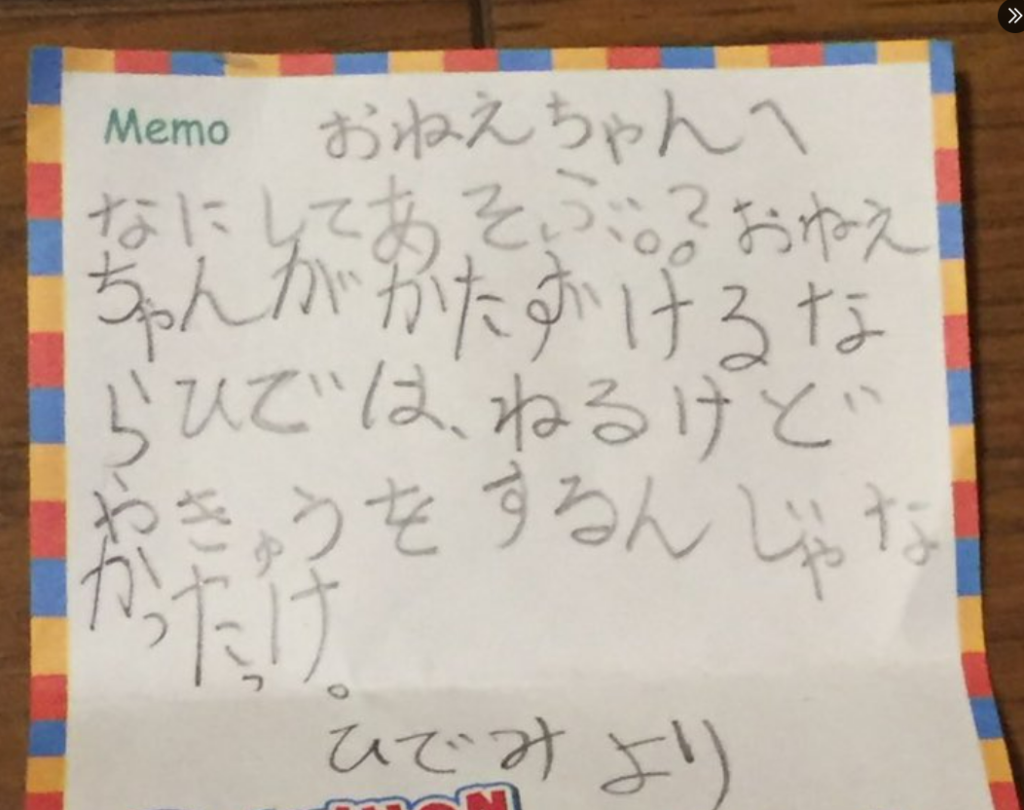 Memo
おねえちゃんへ
なにしてあそぶ。。?おねえ
ちゃんがかたずけるな
らひでは、ねるけど
やきゅうをするんじゃな
かったっけ。
ひでみより